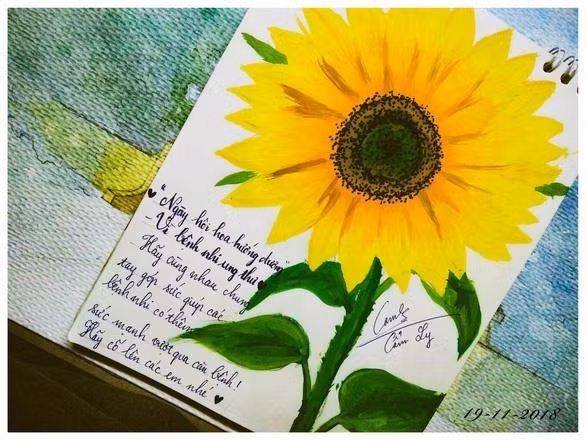 "Ngày hội hoa hướng dương
- Vì bệnh nhi ung thư
Hãy cùng nhau chung
tay góp sức giúp các
bệnh nhi có thêm
sức mạnh vượt qua căn bệnh!
Hãy cố lên các em nhé
Cẩm Ly
19-11-2018